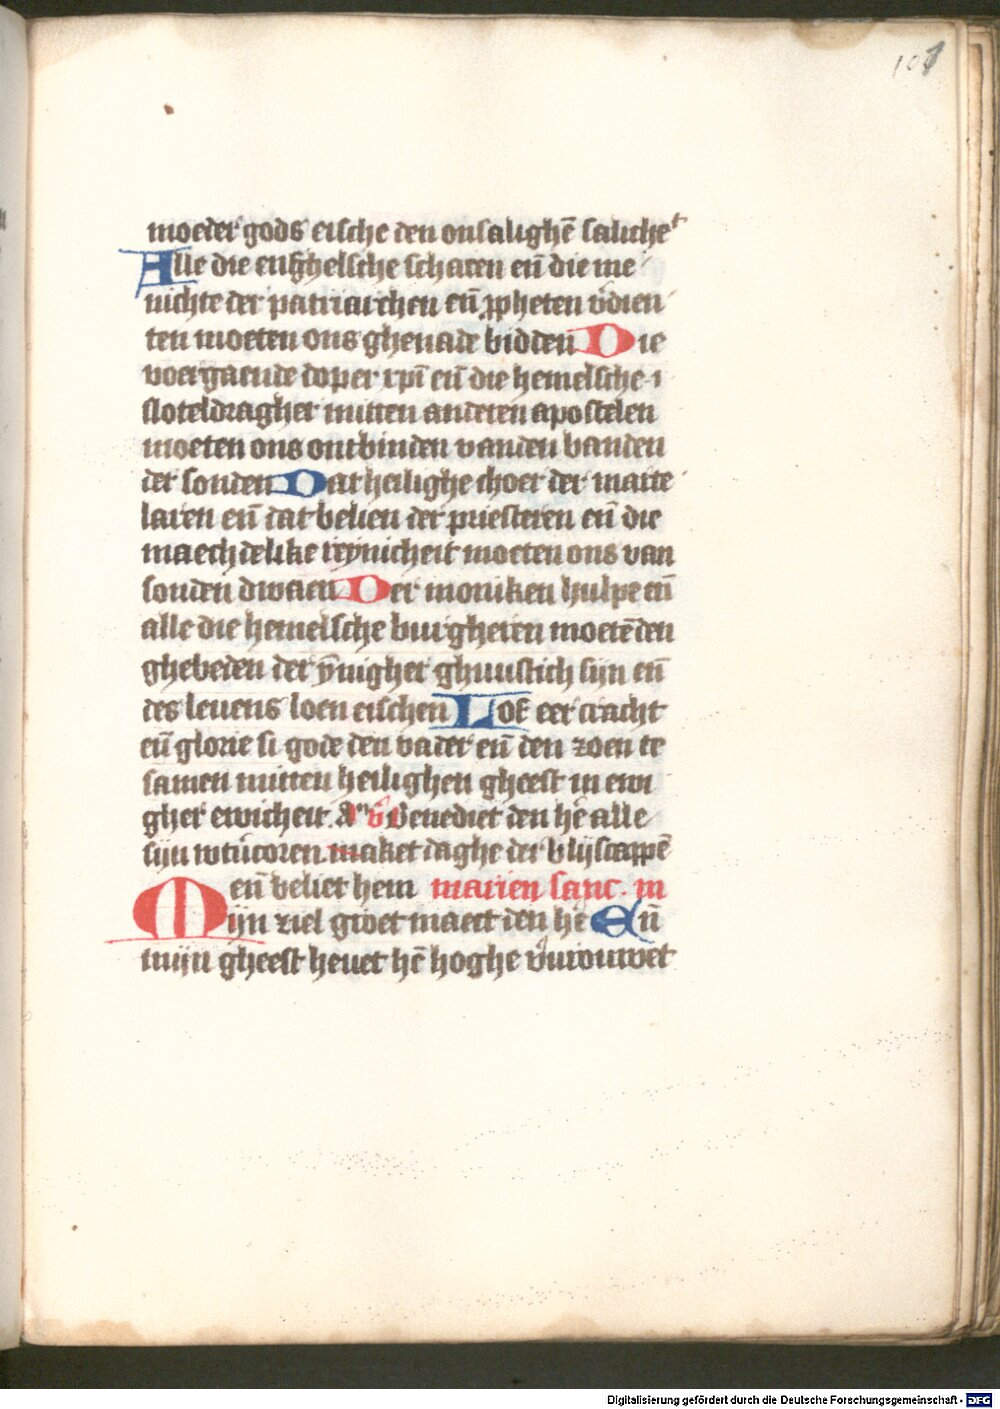 107
moeder gods eische den onsalighē saliche^t
Alle die enghelsche scharen en̄ die me
nichte der patriarchen en̄ ꝓpheten v̓dien
ten moeten ons ghenade bidden Die
voergaende doper xp̄i en̄ die hemelsche
sloteldragher mitten anderen apostelen
moeten ons ontbinden vanden banden
der sonden Dat heilighe choer der marte
laren en̄ dat belien der priesteren en̄ die
maechdelike reynicheit moeten ons van
sonden dwaen Der moniken hulpe en̄
alle die hemelsche burgheren moetē den
ghebeden der ȳnigher ghunstich sijn en̄
des leuens loen eischen Lof eer cracht
en̄ glorie si gode den vader en̄ den zoen te
samen mitten heilighen gheest in ewi
gher ewicheit. Am̄ v̓ Benediet den hē alle
sijn wtūcoren maket daghe der blijscappē
en̄ beliet hem marien sanc. m
Mijn ziel groet maect den hē En̄
mijn gheest heuet hē hoghe v̓urouwet
Digitalisierung gefördert durch die Deutsche Forschungsgemeinschaft - DFG